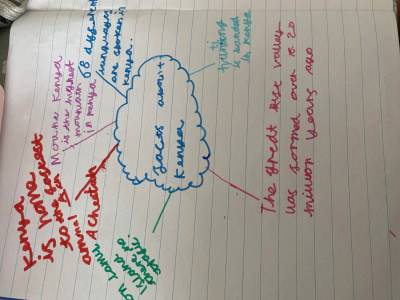 facts about
Kenya
68 different
languages
are spoken in
kenya.
Mount Kenya
is the highest
mountain
in kenya
Kenya
is home
to the fastest
A Cheetah
on Lamu
island
there no
hunting
is banded
in kenya
The great rift valley
was formed over is 20
million years ago